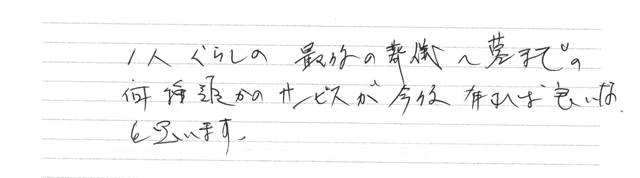 1人ぐらしの 最後の葬儀〜墓までの
何種類かのサービスが今後有れば良いな
と思います。